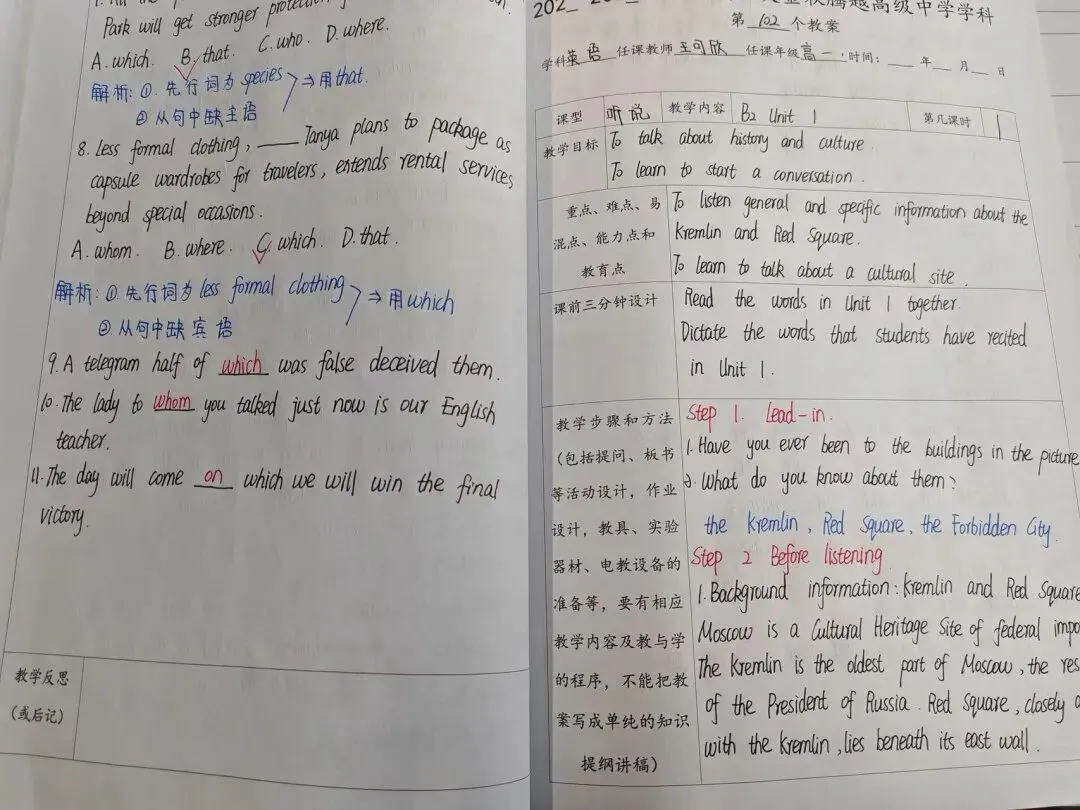 Park will get stronger
A. which. B. that. C. who. D. where.
解析: ①. 先行词为 species
⇒ 用that.
② 从句中缺主语
8. Less formal clothing, ____ Tanya plans to package as
capsule wardrobes for travelers, extends rental services
beyond special occasions.
A. whom. B. where. C. which. D. that.
解析: ①. 先行词为 less formal clothing
⇒ 用which
② 从句中缺宾语
9. A telegram half of which was false deceived them.
10. The lady to whom you talked just now is our English
teacher.
11. The day will come on which we will win the final
victory.
教学反思
(或后记)
腾越高级中学学科
第 102 个教案
学科 英语 任课教师 王可欣 任课年级 高一 . 时间: ___ 年 ___ 月 ___ 日
课型 听说 教学内容 B2 Unit 1 第几课时 1
教学目标 To talk about history and culture.
To learn to start a conversation.
重点、难点、易 To listen general and specific information about the
混点、能力点和 Kremlin and Red Square.
教育点 To learn to talk about a cultural site.
课前三分钟设计 Read the words in Unit 1 together.
Dictate the words that students have recited
in Unit 1.
教学步骤和方法 Step 1. Lead-in.
(包括提问、板书 1. Have you ever been to the buildings in the picture
等活动设计,作业 2. What do you know about them?
设计,教具、实验 the Kremlin, Red Square, the Forbidden City.
器材、电教设备的 Step 2 Before listening
准备等,要有相应 1. Background information: Kremlin and Red Square
教学内容及教与学 Moscow is a Cultural Heritage Site of federal impo
的程序,不能把教 The Kremlin is the oldest part of Moscow, the res
案写成单纯的知识 of the President of Russia. Red Square, closely
提纲讲稿) with the Kremlin, lies beneath its east wall.